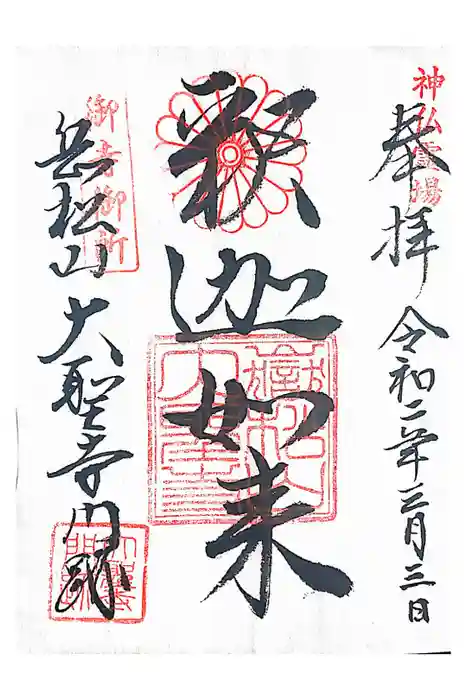 神仏霊場
奉拝 令和二年三月三日
釈迦如来
嶽松山
大聖寺
御寺御所
岳松山 大聖寺門跡